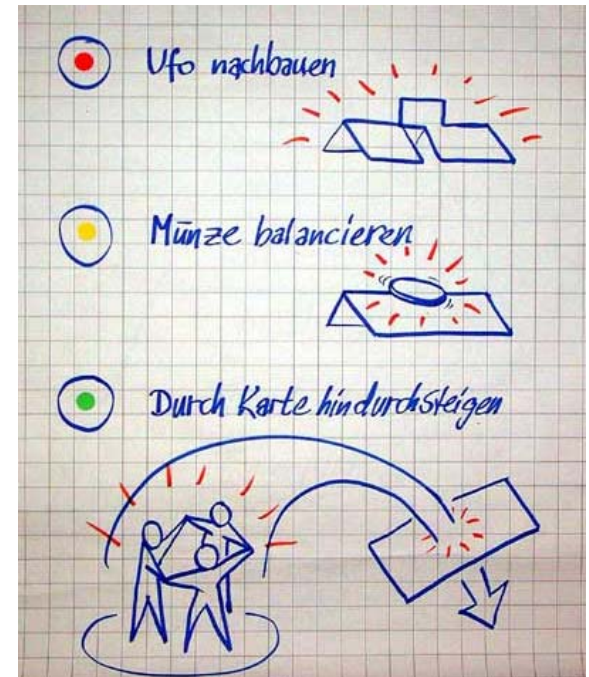 Ufo nachbauen
Münze balancieren
Durch Karte hindurchsteigen